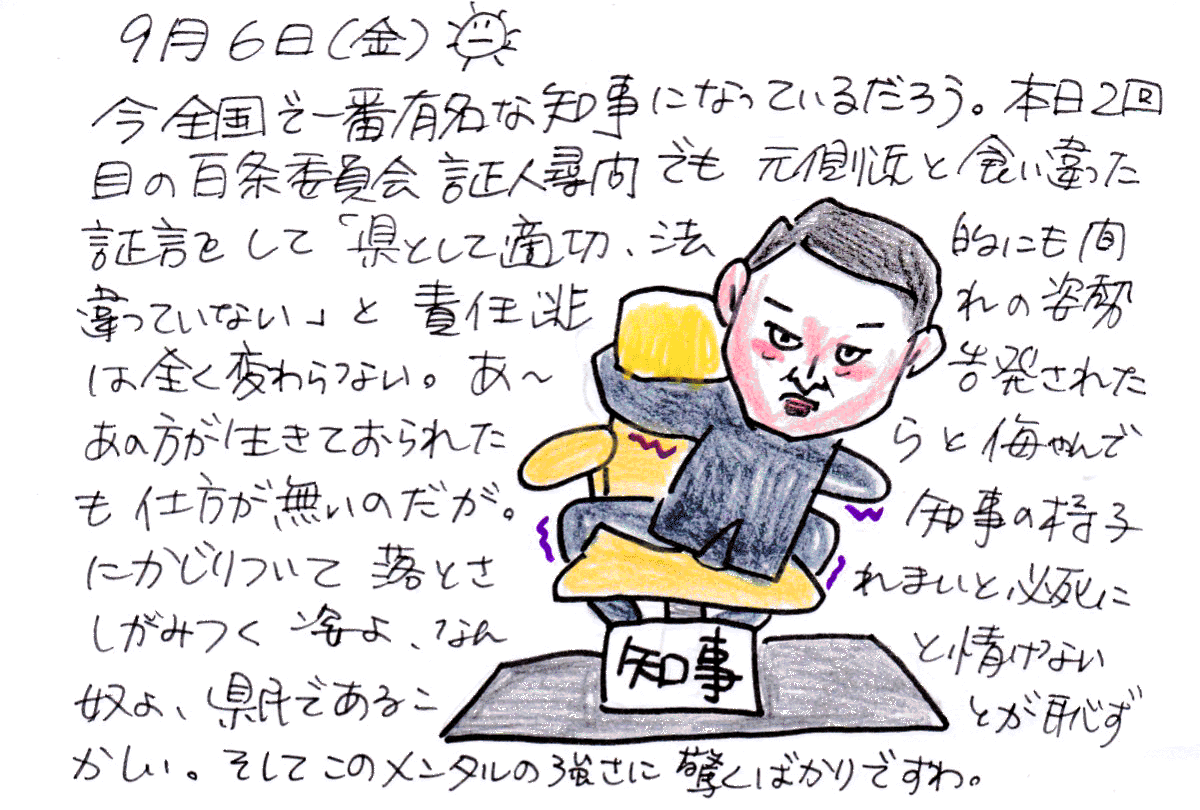 9月6日(金)
今全国で一番有名な知事になっているだろう。本日2回
目の百条委員会証人尋問でも元側近と食い違った
証言をして「県として適切、法的にも間
違っていない」と責任逃れの姿勢
は全く変わらない。あ～告発された
あの方が生きておられたらと悔やんで
も仕方が無いのだが。知事の椅子
にかじりついて落とされまいと必死に
しがみつく姿よ、なんと情けない
奴よ、県民であることが恥ず
かしい。そしてこのメンタルの強さに驚くばかりですわ。
知事